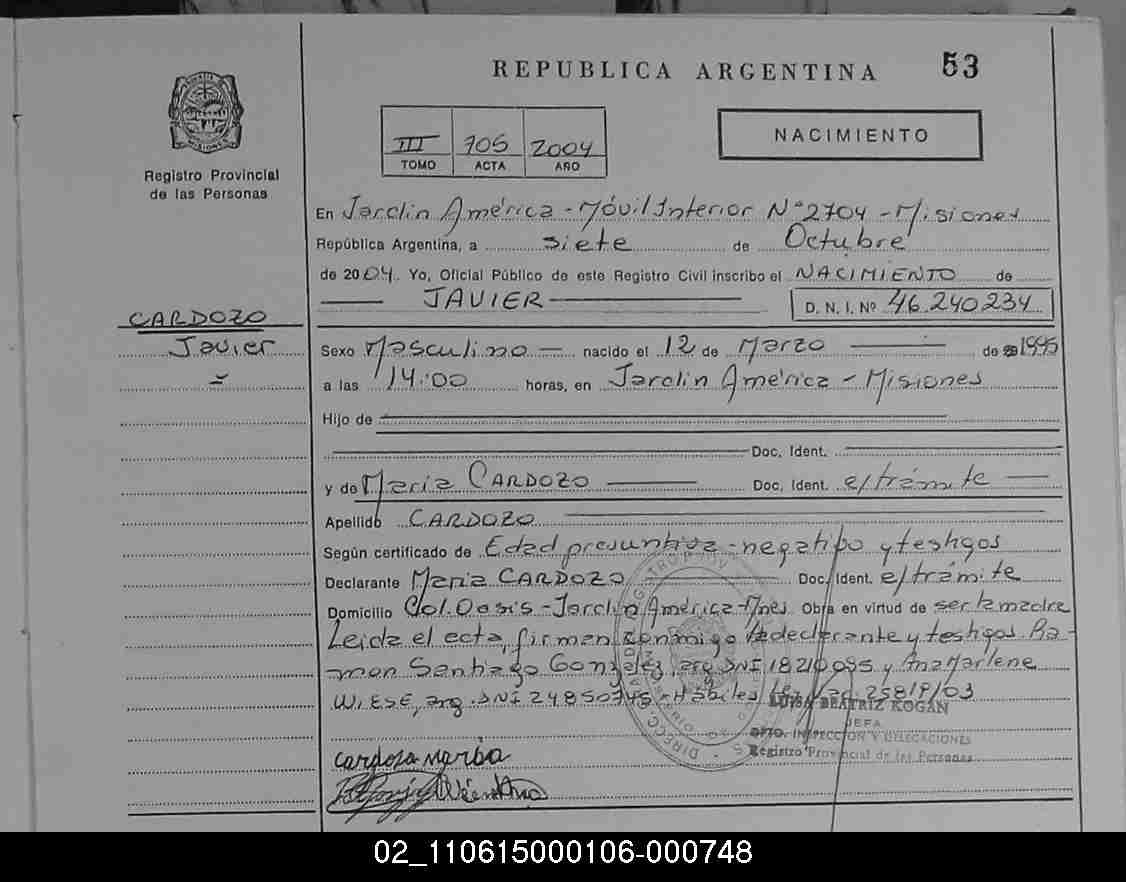 REPUBLICA ARGENTINA
53
III 705 2004
TOMO ACTA AÑO
NACIMIENTO
MISIONES
Registro Provincial
de las Personas
En Jardin América - Móvil Interior N° 2704 - Misiones
República Argentina, a siete de Octubre
de 2004. Yo, Oficial Público de este Registro Civil inscribo el NACIMIENTO de
JAVIER D. N. I. Nº 46.240.234
CARDOZO
Javier
Sexo Masculino nacido el 12 de Marzo de 1995
a las 14:00 horas, en Jardin América - Misiones
Hijo de
Doc. Ident.
y de Maria CARDOZO Doc. Ident. e/trámite
Apellido CARDOZO
Según certificado de Edad presuntiva - negatibo y testigos
Declarante Maria CARDOZO Doc. Ident. e/trámite
Domicilio Col. Oasis - Jardin América - Mnes Obra en virtud de ser la madre
Leida el acta, firman conmigo la declarante y testigos. Ra-
mon Santiago Gonzalez, arg. DNI 18210095 y Ana Marlene
WIESE, arg. DNI 24850746 - Hábiles 2581/03
LUISA BEATRIZ KOGAN
JEFA
DPTO. INSPECCION Y DELEGACIONES
Registro Provincial de las Personas
cardozo maria
02_110615000106-000748